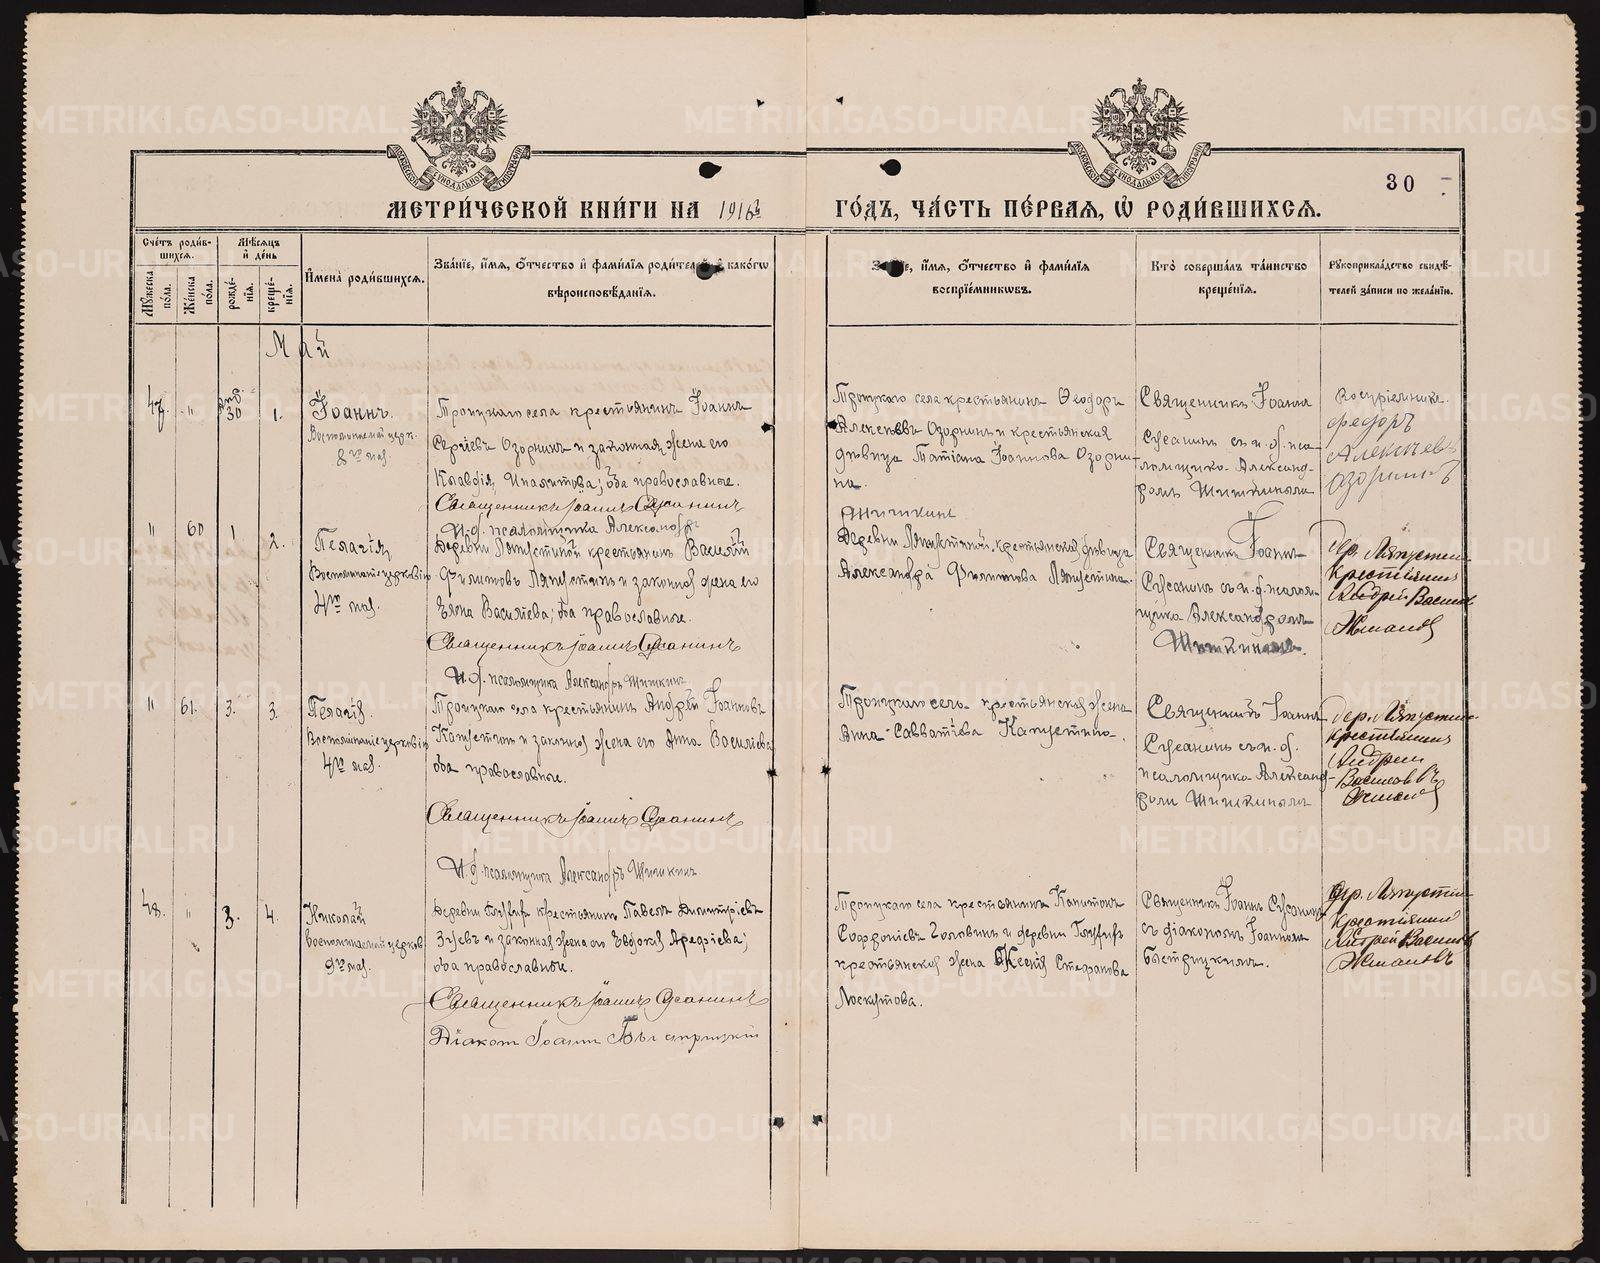 30
МЕТРИ́ЧЕСКОЙ КНИ́ГИ НА 1916й ГО́ДЪ, ЧА́СТЬ ПЕ́РВАЯ, Ѡ҆ РОДИ́ВШИХСЯ.
Сче́тъ роди́в-
шихся.
Мѣ́сяцъ
и҆ де́нь
Мꙋ́жеска
по́ла.
Же́нска
по́ла.
рожде́-
нїя.
креще́-
нїя.
И҆мена̀ роди́вшихся.
Зва́нїе, и҆́мя, ѻ҆́тчество и҆ фами́лїя роди́телей како́гѡ
вѣроисповѣ́данїя.
и҆́мя, ѻ҆́тчество и҆ фами́лїя
воспрїе́мникѡвъ.
Кто̀ соверша́лъ та́инство
креще́нїя.
Рꙋкоприкла́дство свидѣ́-
телей за́писи по жела́нїю.
Май
47. " 30 1.
Іоаннъ.
8го мая.
Троицкаго села крестьянинъ Іоаннъ
Сергіевъ Озорнинъ и законная жена его
Клавдія Ипатова; оба православные.
Священникъ Іоаннъ Сусанинъ
И. д. псаломщика Александръ
Шишкинъ
Троицкаго села крестьянинъ Ѳеодоръ
Алексѣевъ Озорнинъ и крестьянская
дѣвица Татіана Іоаннова Озорни-
на.
Священникъ Іоаннъ
Сусанинъ съ и. д. пса-
ломщика Александ-
ромъ Шишкинымъ
Воспріемникъ
Федоръ
Алексѣевъ
Озорнинъ
" 60 1 2.
Пелагія
4го мая.
Деревни Ляпустиной крестьянинъ Василій
Филиповъ Ляпустинъ и законная жена его
Елена Василіева; оба православные.
Священникъ Іоаннъ Сусанинъ
И. д. псаломщика Александръ Шишкинъ
Деревни Ляпустиной крестьянская дѣвица
Александра Филипова Ляпустина.
Священникъ Іоаннъ
Сусанинъ съ и. д. псалом-
щика Александромъ
Шишкинымъ.
дер. Ляпустин
крестьянинъ
Андрей Василь
" 61. 3. 3.
Пелагія.
4го мая.
Троицкаго села крестьянинъ Андрей Іоанновъ
Капустинъ и законная жена его Анна Василіева
оба православные.
Священникъ Іоаннъ Сусанинъ
И. д. псаломщика Александръ Шишкинъ
Троицкаго села крестьянская жена
Анна Савватіева Капустина.
Священникъ Іоаннъ
Сусанинъ съ и. д.
псаломщика Александ-
ромъ Шишкинымъ
дер. Ляпустин
крестьянинъ
Андрей
Васильевъ
48. " 3. 4.
Николай
9го мая.
крестьянинъ Павелъ Димитріевъ
Зуевъ и законная жена его Евдокія Арефіева;
оба православные.
Священникъ Іоаннъ Сусанинъ
Діаконъ Іоаннъ Быстрицкій
Троицкаго села крестьянинъ Капитонъ
Софроніевъ Головинъ и деревни
крестьянская жена Ксенія Стефанова
Лоскутова.
Священникъ Іоаннъ Сусанинъ
съ діакономъ Іоанномъ
Быстрицкимъ.
дер. Ляпустин
крестьянинъ
Андрей Васильевъ